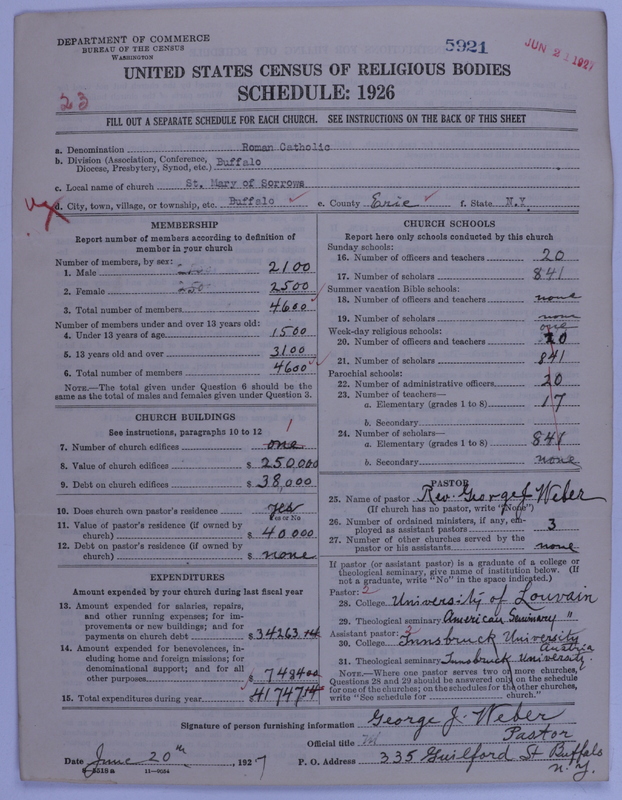 DEPARTMENT OF COMMERCE
BUREAU OF THE CENSUS
WASHINGTON
5921
JUN 21 1927
UNITED STATES CENSUS OF RELIGIOUS BODIES
SCHEDULE: 1926
23
FILL OUT A SEPARATE SCHEDULE FOR EACH CHURCH. SEE INSTRUCTIONS ON THE BACK OF THIS SHEET
a. Denomination Roman Catholic
b. Division (Association, Conference, Diocese, Presbytery, Synod, etc.) Buffalo
c. Local name of church St. Mary of Sorrows
d. City, town, village, or township, etc. Buffalo e. County Erie f. State N.Y.
MEMBERSHIP
Report number of members according to definition of
member in your church
Number of members, by sex:
1. Male 2100
2. Female 2500
3. Total number of members 4600
Number of members under and over 13 years old:
4. Under 13 years of age 1500
5. 13 years old and over 3100
6. Total number of members 4600
NOTE.—The total given under Question 6 should be
same as the total of males and females given under Question 3.
CHURCH BUILDINGS
See instructions, paragraphs 10 to 12
7. Number of church edifices one 1
8. Value of church edifices $ 250,000
9. Debt on church edifices $ 38,000
10. Does church own pastor's residence yes
Yes or No
11. Value of pastor's residence (if owned by
church) $ 40000
12. Debt on pastor's residence (if owned by
church) $ none
EXPENDITURES
Amount expended by your church during last fiscal year
13. Amount expended for salaries, repairs,
and other running expenses; for im-
provements or new buildings; and for
payments on church debt $ 34263.14
14. Amount expended for benevolences, in-
cluding home and foreign missions; for
denominational support; and for all
other purposes $ 748400
15. Total expenditures during year $ 4174714
CHURCH SCHOOLS
Report here only schools conducted by this church
Sunday schools:
16. Number of officers and teachers 20
17. Number of scholars 841
Summer vacation Bible schools:
18. Number of officers and teachers none
19. Number of scholars none
Week-day religious schools: one
20. Number of officers and teachers 20
21. Number of scholars 841
Parochial schools:
22. Number of administrative officers 20
23. Number of teachers—
a. Elementary (grades 1 to 8) 17
b. Secondary
24. Number of scholars—
a. Elementary (grades 1 to 8) 841
b. Secondary none
PASTOR
25. Name of pastor Rev. George J. Weber
(If church has no pastor, write "None")
26. Number of ordained ministers, if any, em-
ployed as assistant pastors 3
27. Number of other churches served by the
pastor or his assistants none
If pastor (or assistant pastor) is a graduate of a college or
theological seminary, give name of institution below. (If
not a graduate, write "No" in the space indicated.)
Pastor: 2
28. College University of Louvain
29. Theological seminary American Seminary "
Assistant pastor: 2
30. College Innsbruck University Austria
31. Theological seminary Innsbruck University.
NOTE.—Where one pastor serves two or more churches,
Questions 28 and 29 should be answered only on the schedule
for one of the churches; on the schedules for the other churches,
write "See schedule for church."
Signature of person furnishing information George J. Weber
Official title Pastor
Date June 20th, 1927 P. O. Address 335 Guilford St Buffalo
N.Y.
8-5518a 11-9054